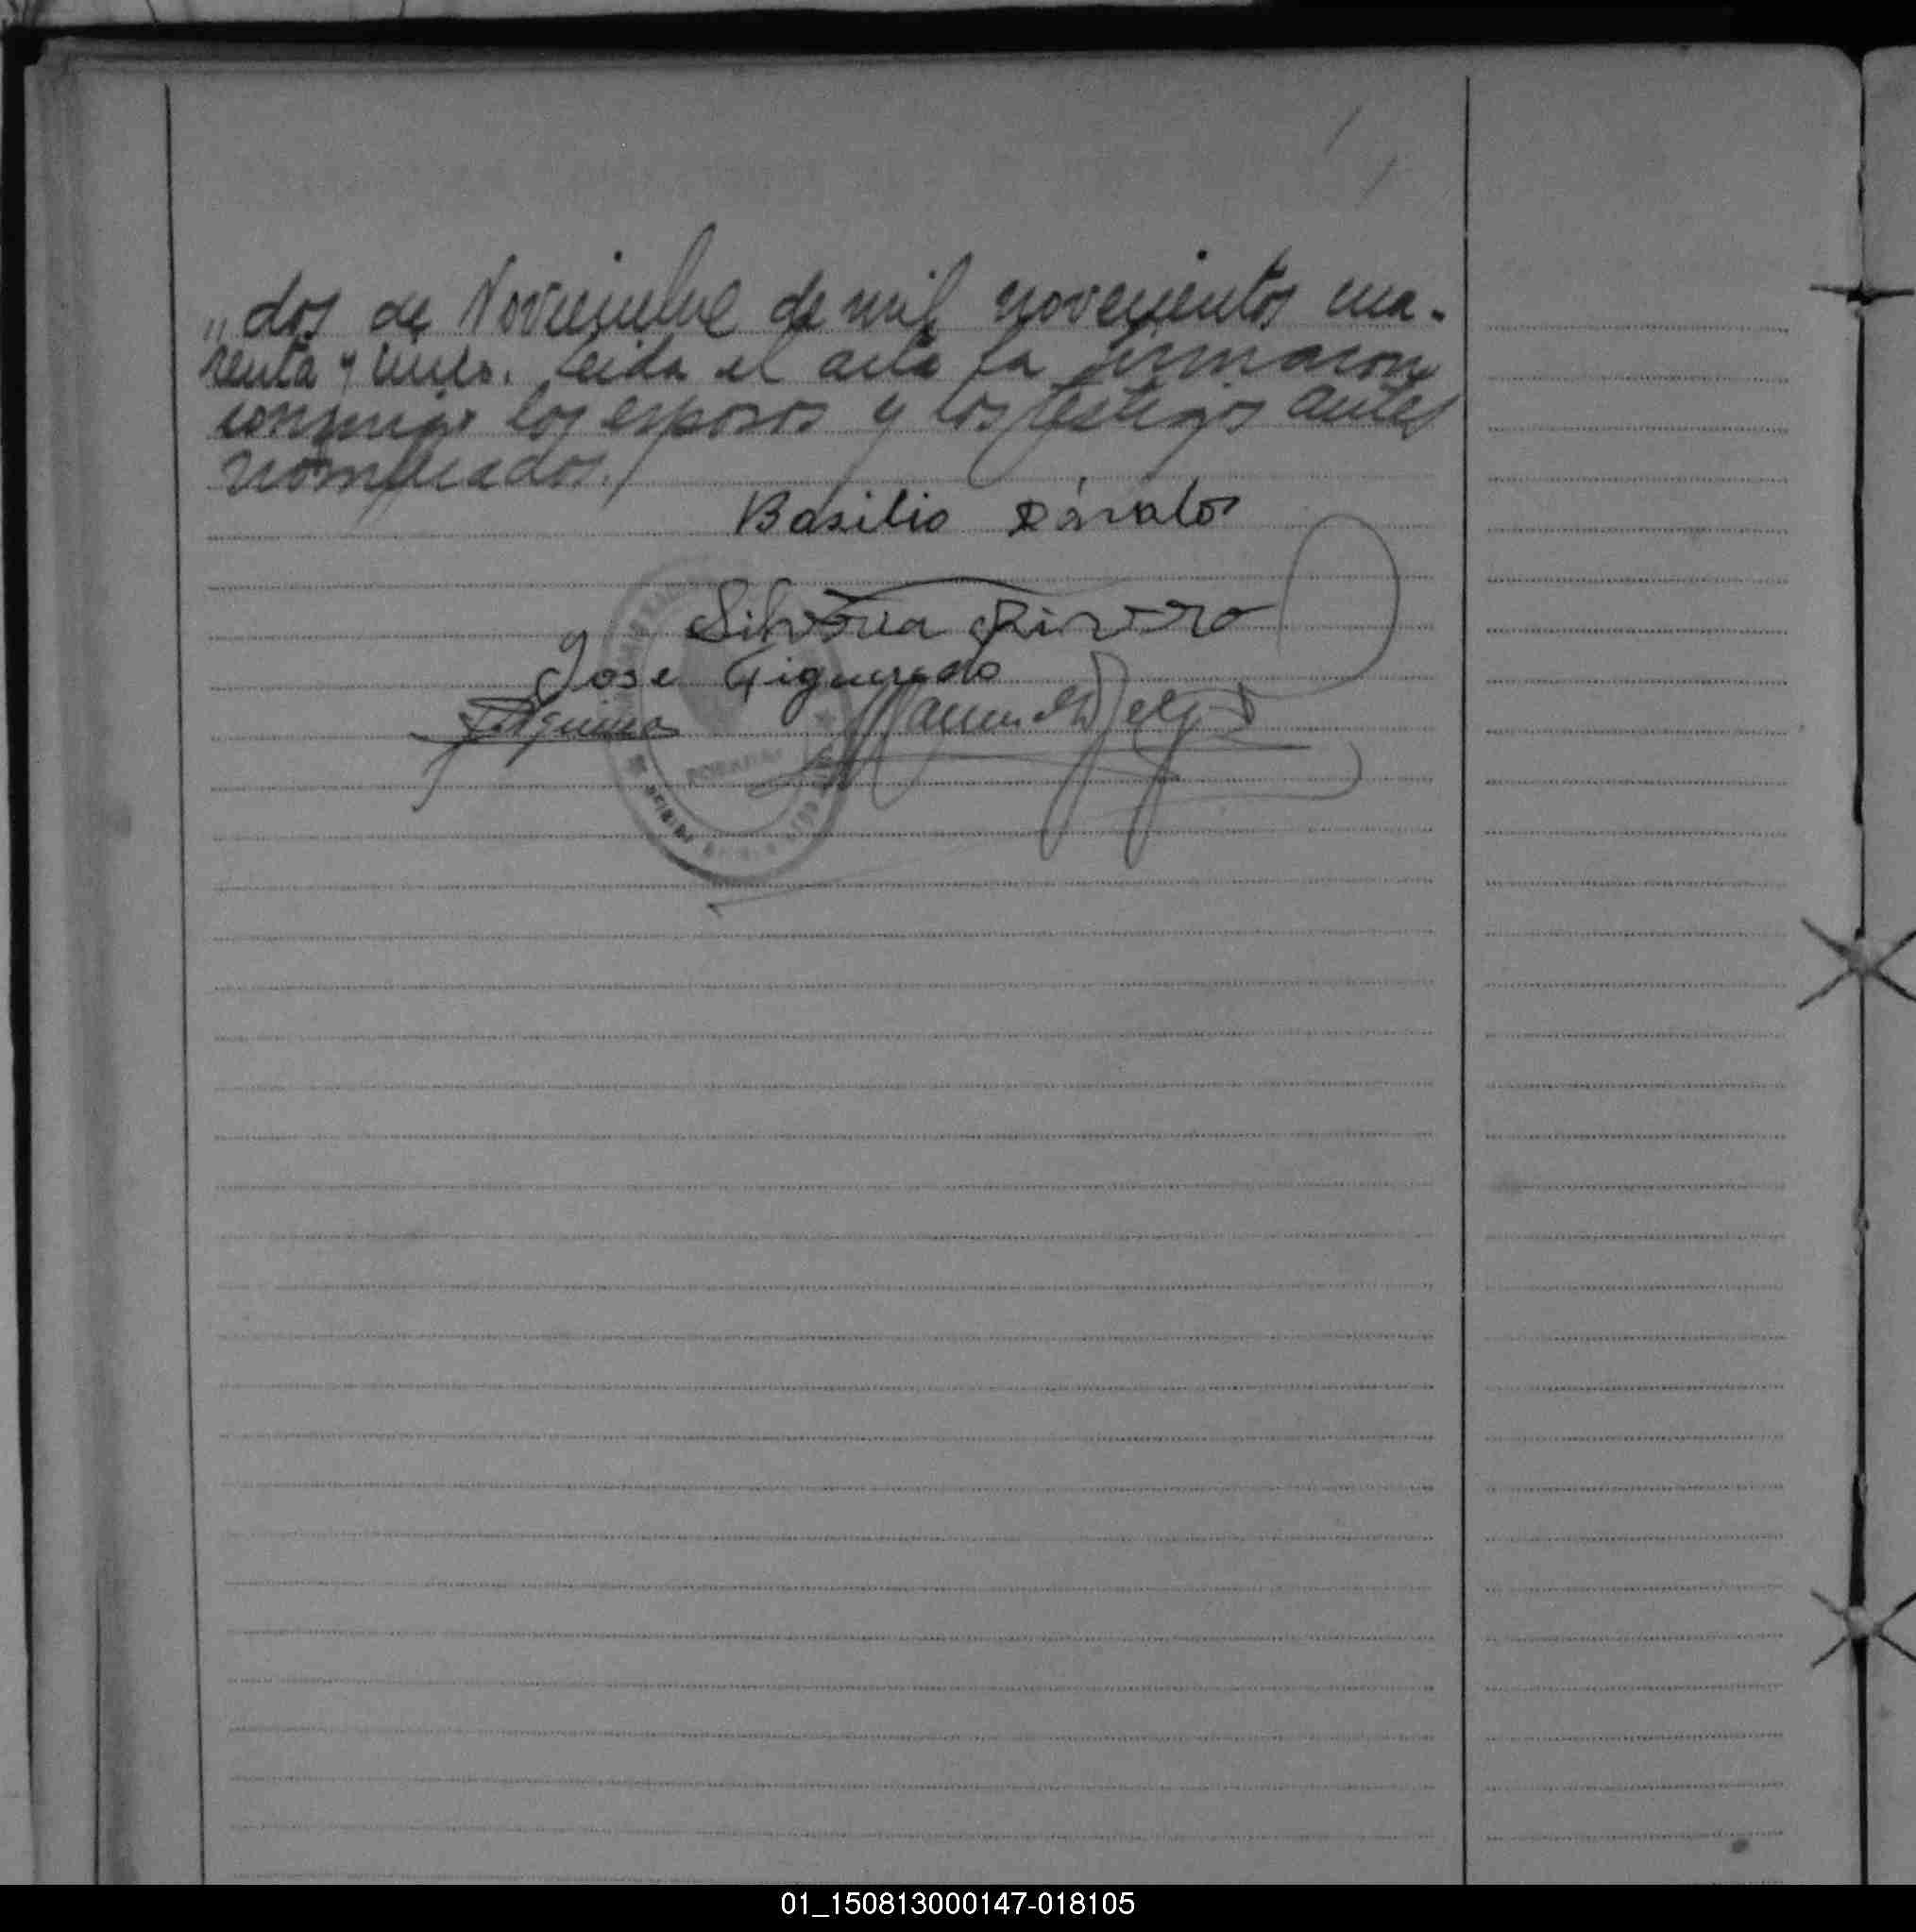 „dos de Noviembre de mil novecientos cua-
renta y cinco. Leida el acta la firmaron
conmigo los esposos y los testigos antes
nombrados./
Basilio Dávalos
Silveria Rivero
Jose Figueredo
Manuel Delg
POSADAS
01_150813000147-018105